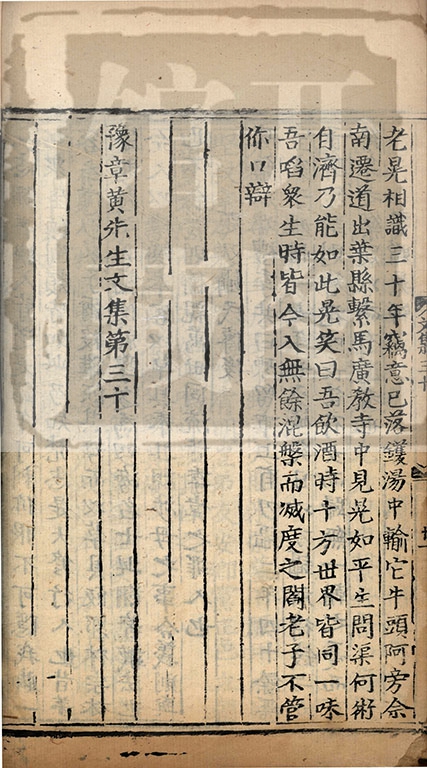 老晃相識三十年竊意已落鑊湯中輸它牛頭阿旁佘
南遷道出葉縣繫馬廣教寺中見晃如平生問渠何術
自濟乃能如此晃笑曰吾飲酒時十方世界皆同一味
吾啗衆生時皆令入無餘涅槃而滅度之閻老子不管
你口辯
豫章黃先生文集第三十